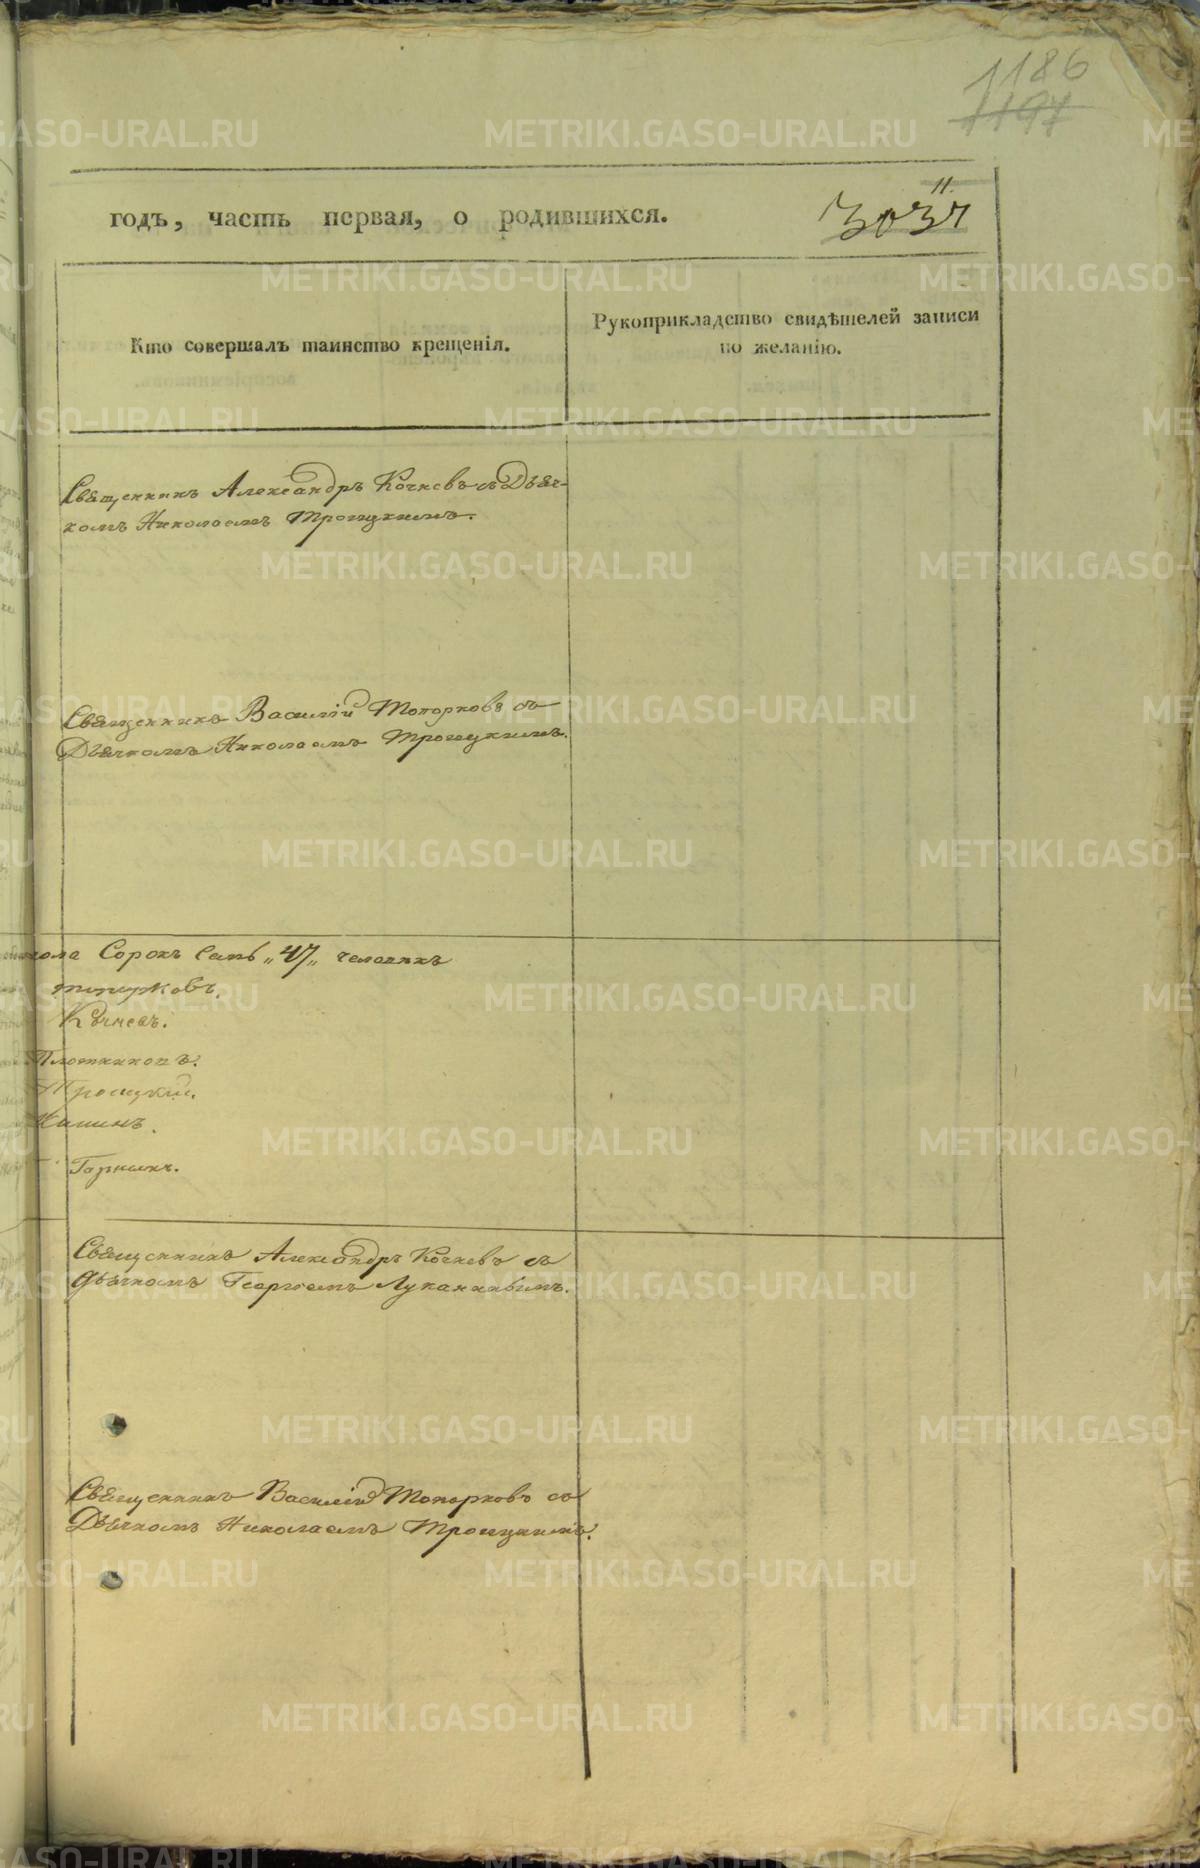 1186
1197
годъ, часть первая, о родившихся.
11.
Кто совершалъ таинство крещенія.
Рукоприкладство свидѣтелей записи
по желанію.
Священникъ Александръ Кочневъ съ Дьяч-
комъ Николаемъ Троицкимъ.
Священникъ Василій Топорковъ съ
Дьячкомъ Николаемъ Троицкимъ.
пола Сорокъ Семь „47„ человѣкъ
Топорковъ.
Кочневъ.
Плотниковъ.
Троицкій.
Священникъ Александръ Кочневъ съ
дьячкомъ Георгіемъ Луканинымъ.
Священникъ Василій Топорковъ съ
Дьячкомъ Николаемъ Троицкимъ.
METRIKI.GASO-URAL.RU